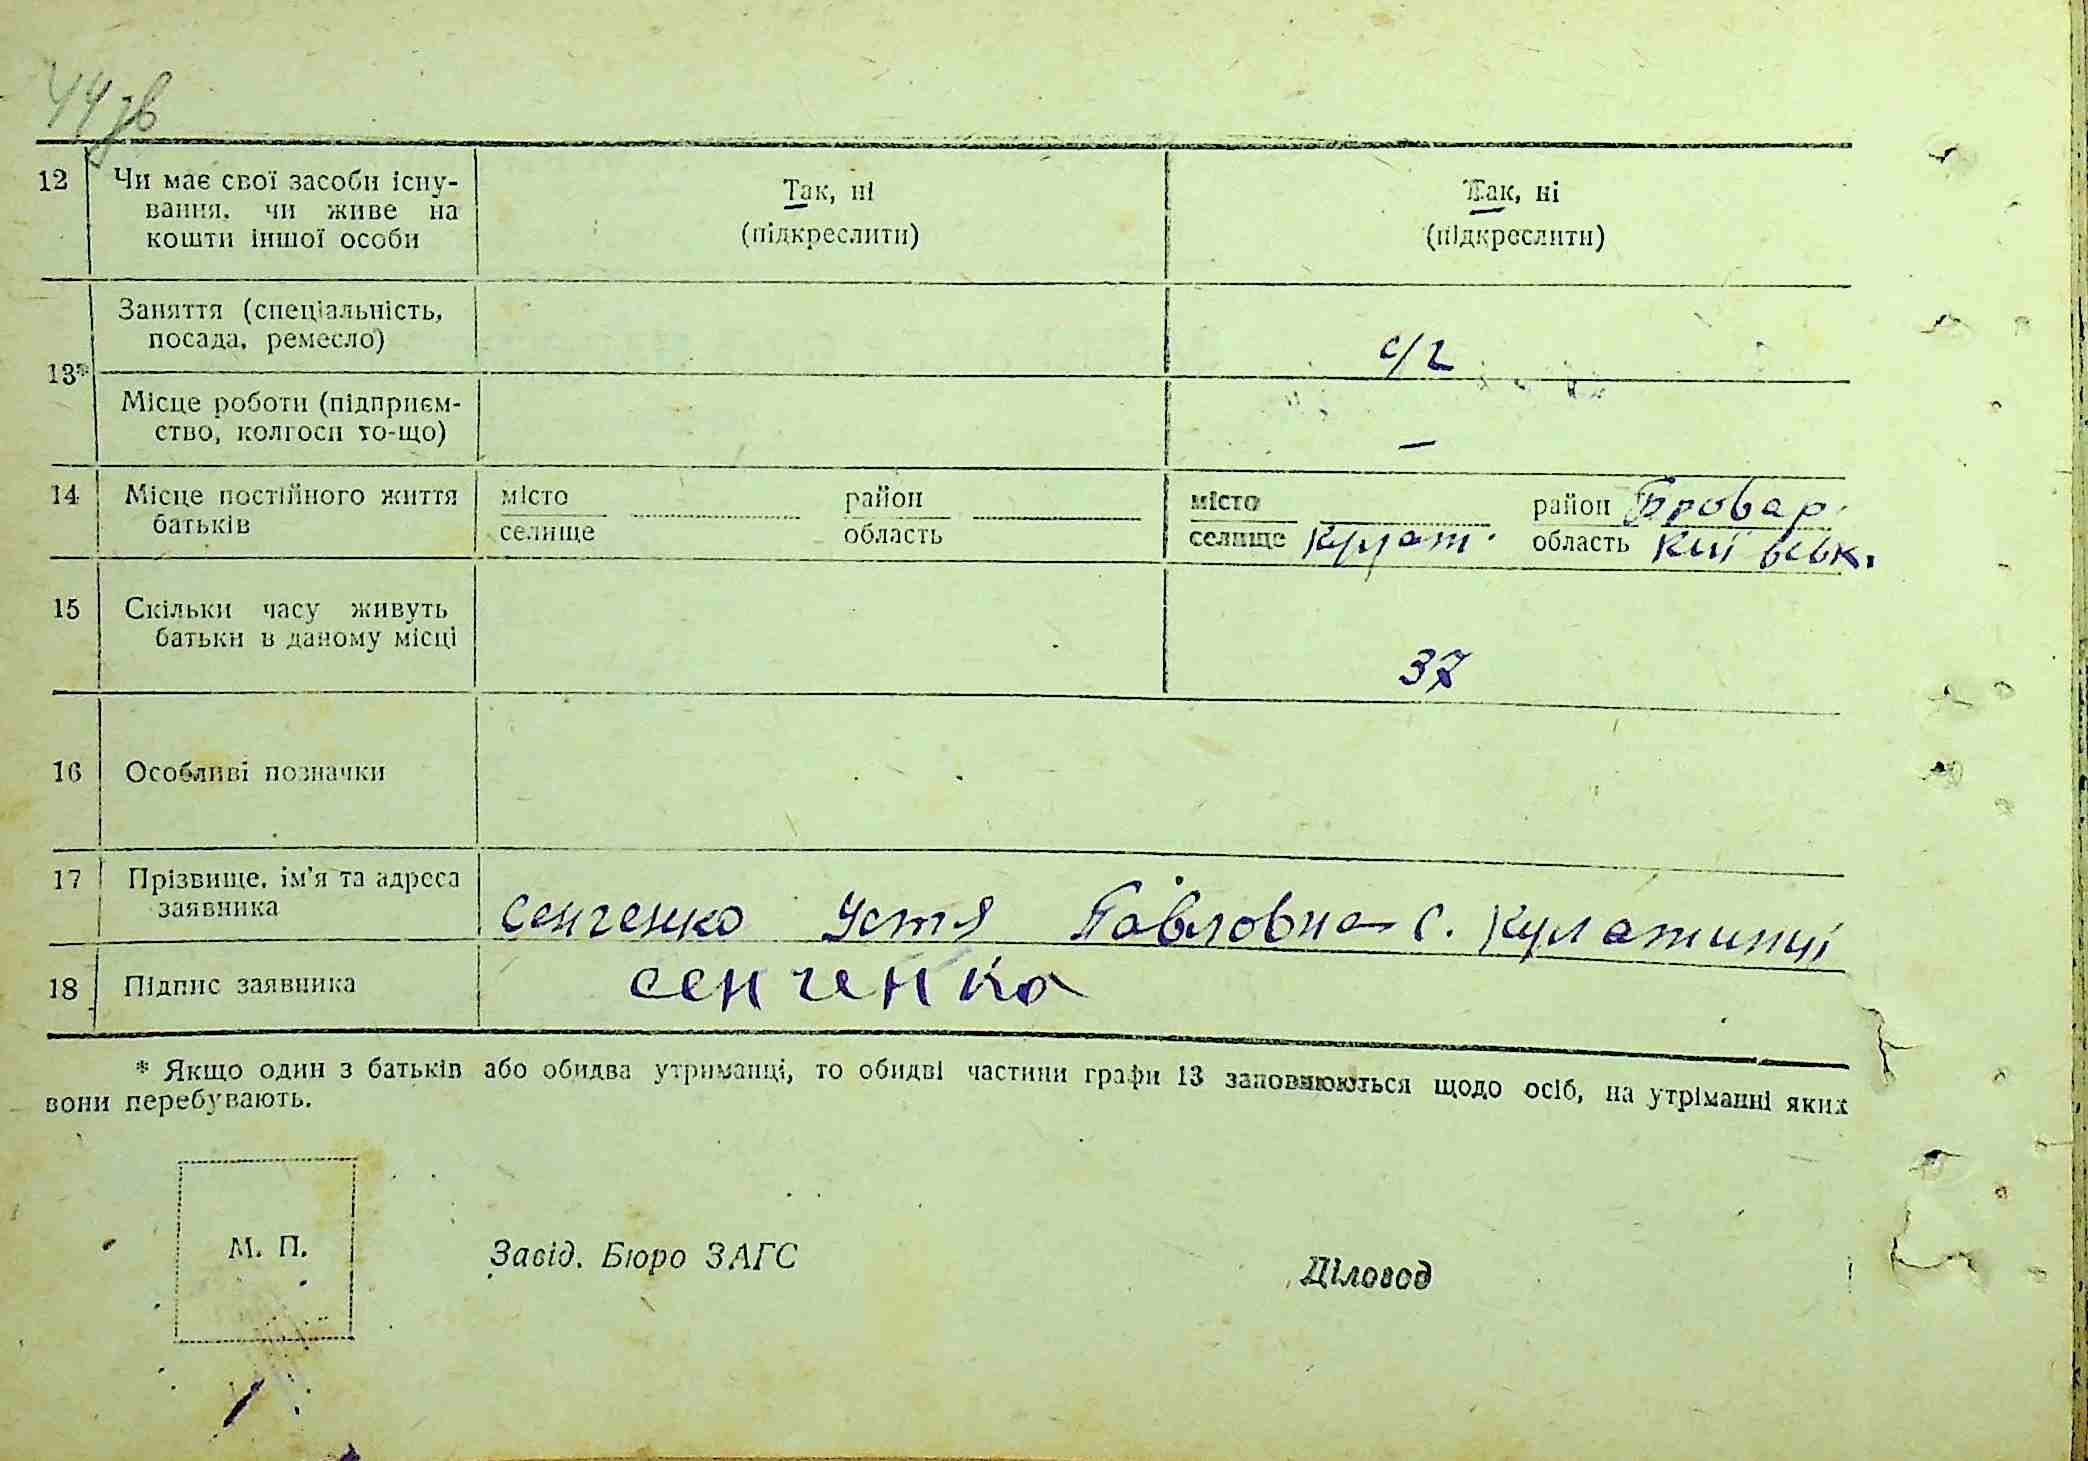 44зв
12 Чи має свої засоби існу- Так, ні Так, ні
вання, чи живе на (підкреслити) (підкреслити)
кошти іншої особи
13* Заняття (спеціальність,
посада, ремесло) с/г
Місце роботи (підприєм-
ство, колгосп то-що) —
14 Місце постійного життя місто район місто район Бровар.
батьків селище область селище Кулаж. область Київськ.
15 Скільки часу живуть
батьки в даному місці 37
16 Особливі позначки
17 Прізвище, ім'я та адреса
заявника Сенченко Устя Павловна с. Кулажинці
18 Підпис заявника сенченко
* Якщо один з батьків або обидва утриманці, то обидві частини графи 13 заповнюються щодо осіб, на утріманні яких
вони перебувають.
М. П. Завід. Бюро ЗАГС Діловод